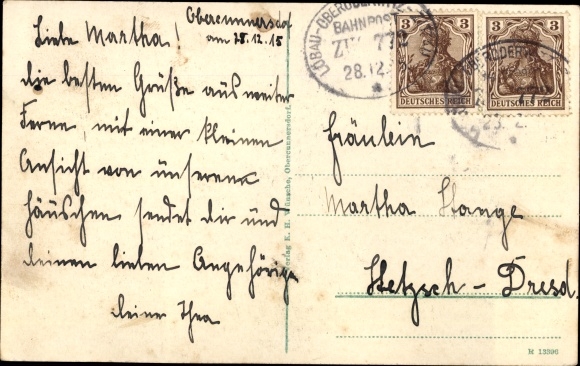 Obercunnersdorf
am 28.12.15
Liebe Martha!
die besten Grüße aus weiter
Ferne, mit einer kleinen
Ansicht von unserem
Häuschen sendet dir und
deinen lieben Angehörige
deiner Thea
Verlag E. H. Wünsche, Obercunnersdorf.
LÖBAU-OBERODERWITZ
BAHNPOST
ZUG 772
28.12.
3 3
DEUTSCHES REICH
3 3
DEUTSCHES REICH
Fräulein
Martha Stange
Hetzsch-Dresd.
H 13396